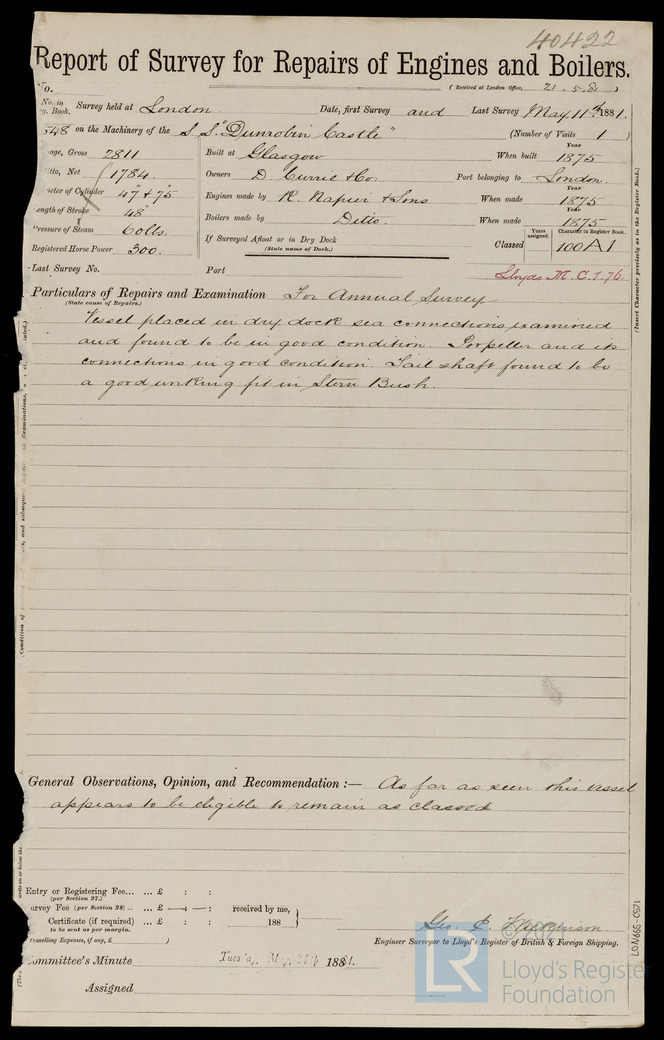 40422
Report of Survey for Repairs of Engines and Boilers.
(Received at London Office, 21.5.81)
No. in Survey held at London Date, first Survey and Last Survey May 11th 1881.
Book.
548 on the Machinery of the S.S. "Dunrobin Castle" (Number of Visits 1)
Gross 2811 Built at Glasgow When built 1875
Net 1784. Owners D. Currie & Co Port belonging to London.
Cylinder 47" & 75" Engines made by R. Napier & Sons When made Year 1875
Length of Stroke 48" Boilers made by Ditto. When made Year 1875
Pressure of Steam 60lbs. If Surveyed Afloat or in Dry Dock Classed Years assigned. Character in Register Book. 100A1
Registered Horse Power 300. (State name of Dock.)
Last Survey No. Port Lloyds M.C. 7.76.
Particulars of Repairs and Examination For Annual Survey
(State cause of Repairs.)
Vessel placed in dry dock sea connections examined
and found to be in good condition. Propeller and its
connections in good condition. Tail shaft found to be
a good working fit in Stern Bush.
(Insert Character precisely as in the Register Book.)
General Observations, Opinion, and Recommendation :— As far as seen this vessel
appears to be eligible to remain as classed
Entry or Registering Fee... ... £ : :
(per Section 27.)
Survey Fee (per Section 28) ... £ received by me,
Certificate (if required) ... £ : : 188
to be sent as per margin.
(Travelling Expenses, if any, £ )
Geo. E.
Engineer Surveyor to Lloyd's Register of British & Foreign Shipping.
Committee's Minute Tuesday, May 24th 1881.
Assigned
LON665-0571
LR
© 2021
Lloyd's Register
Foundation